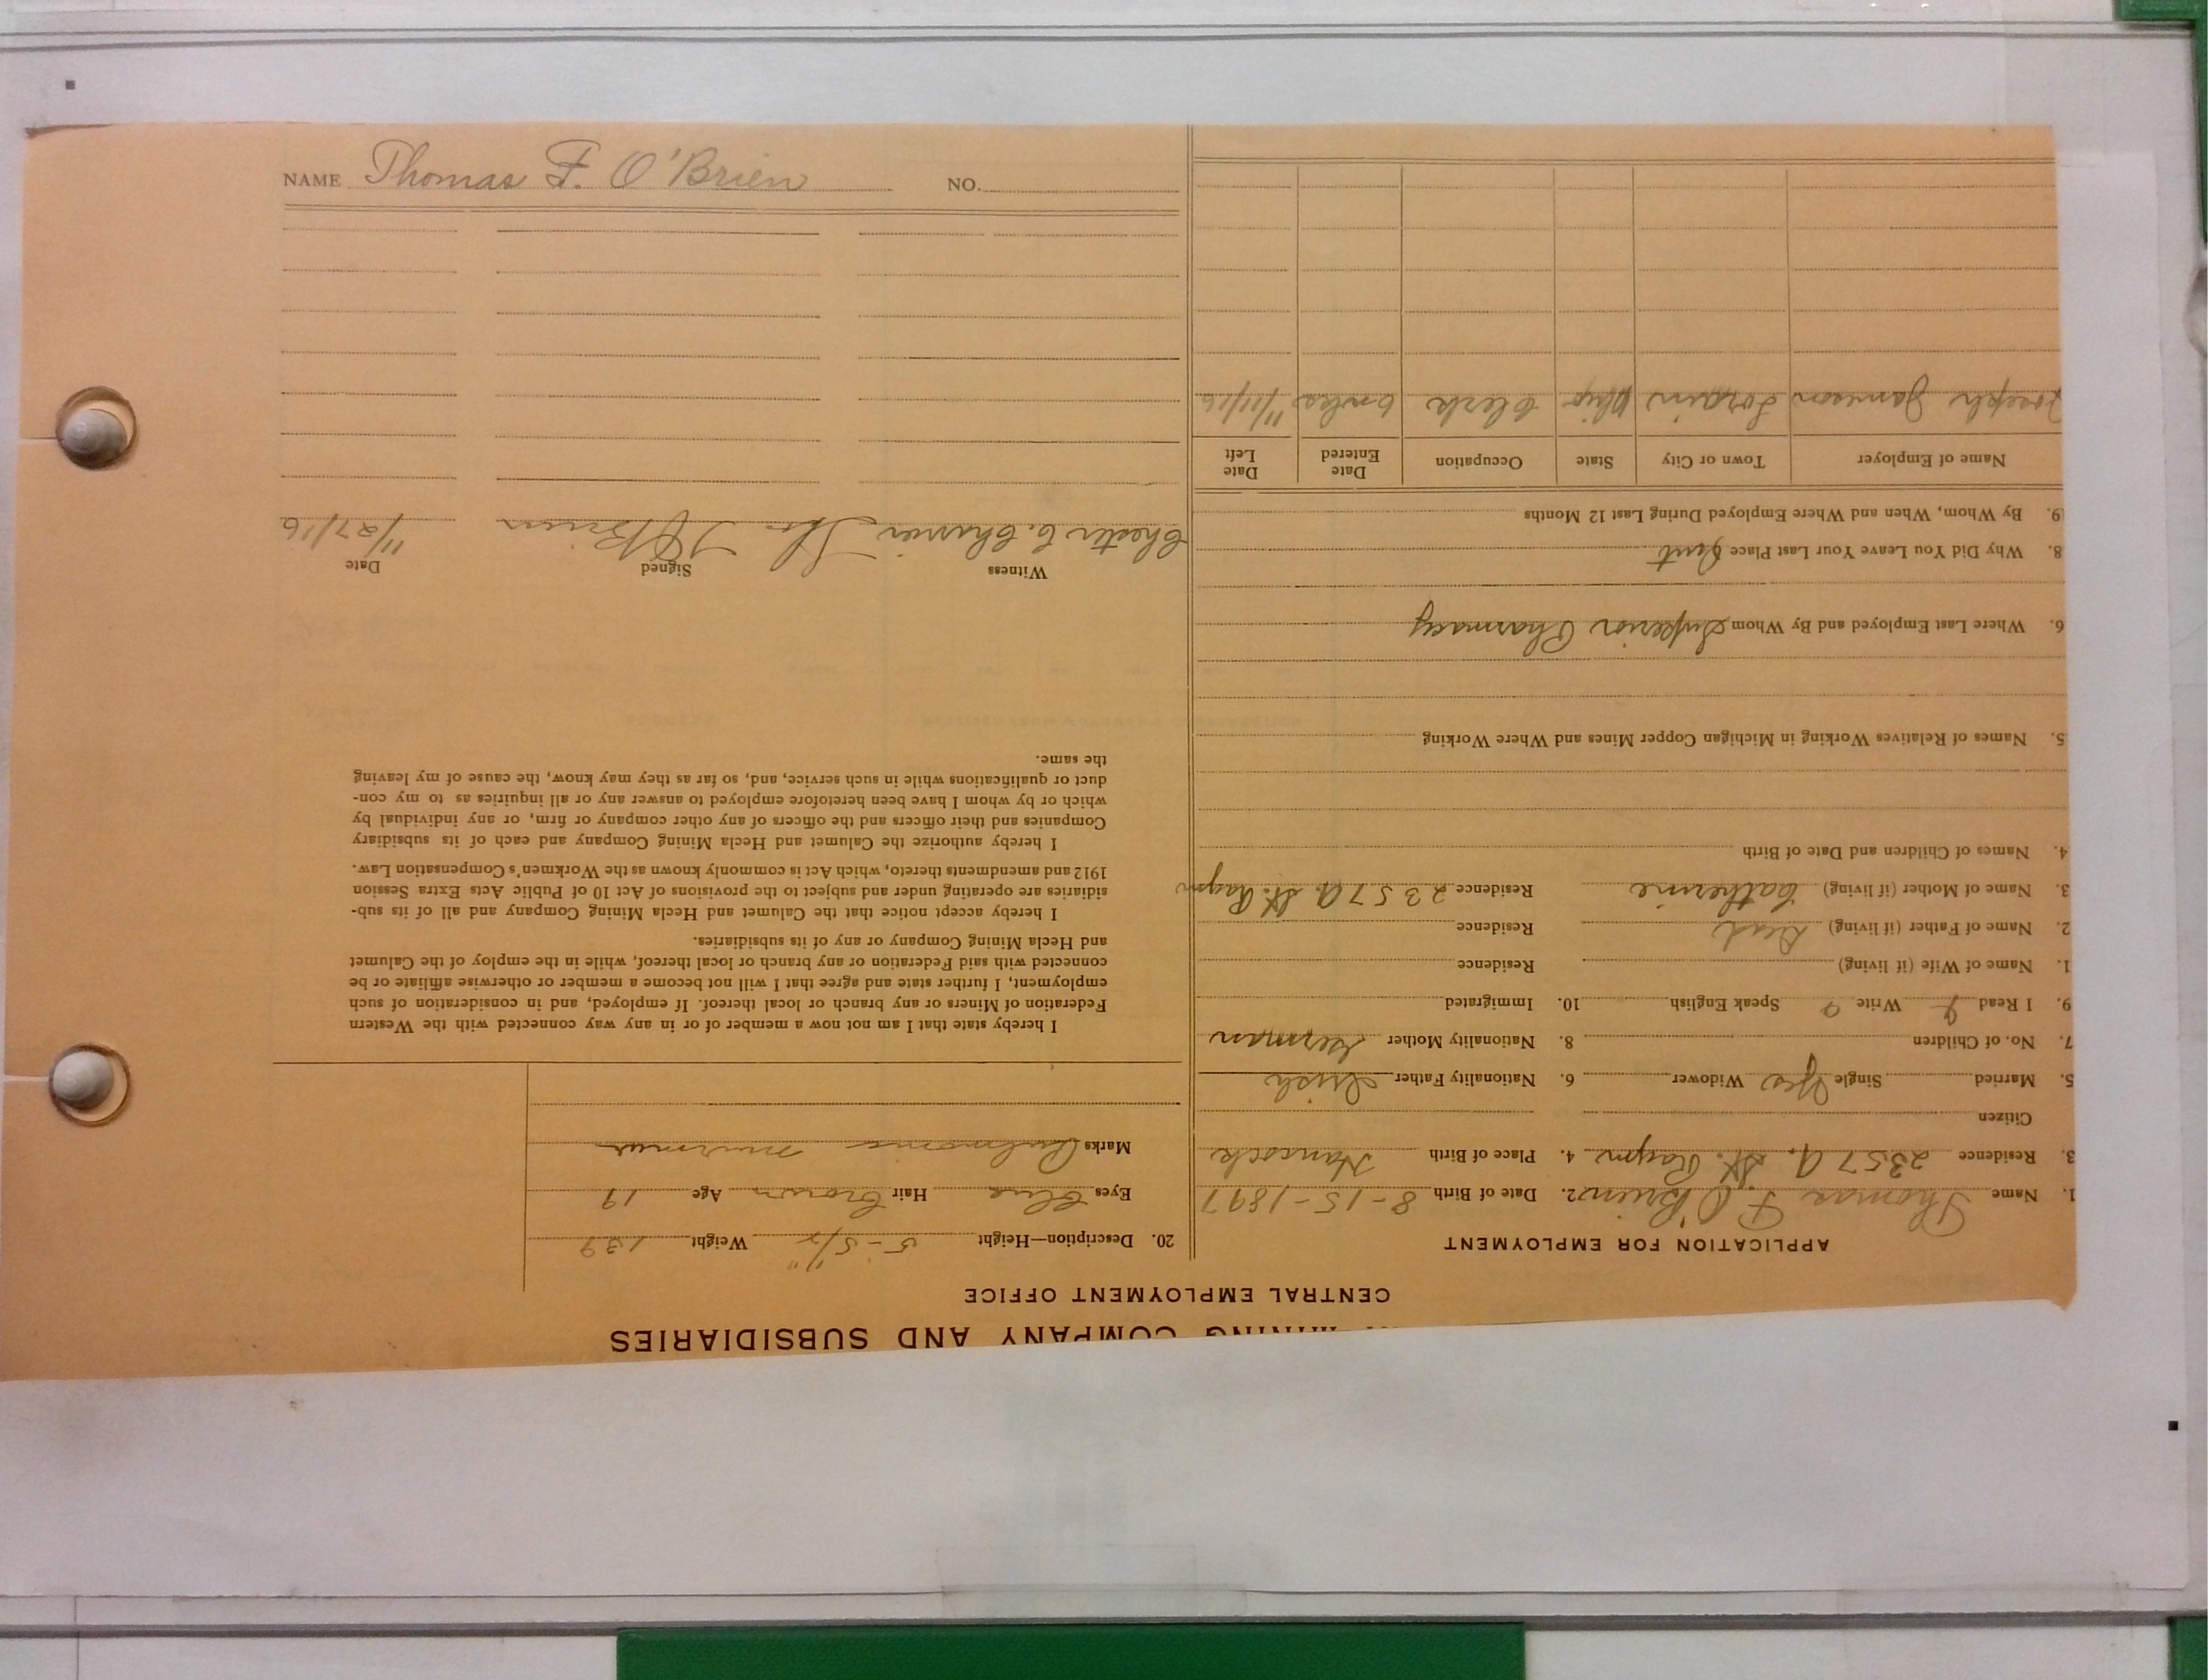 MINING COMPANY AND SUBSIDIARIES
CENTRAL EMPLOYMENT OFFICE
APPLICATION FOR EMPLOYMENT
1. Name Thomas F. O'Brien 2. Date of Birth 8-15-1897
3. Residence 2357 A. St. Raym 4. Place of Birth Hancock
Citizen
5. Married Single Yes Widower 6. Nationality Father Irish
7. No. of Children 8. Nationality Mother German
9. I Read Write Speak English 10. Immigrated
1. Name of Wife (if living) Residence
2. Name of Father (if living) Dead Residence
3. Name of Mother (if living) Catherine Residence 2357 A. St. Raym
4. Names of Children and Date of Birth
5. Names of Relatives Working in Michigan Copper Mines and Where Working
6. Where Last Employed and By Whom Superior Pharmacy
8. Why Did You Leave Your Last Place Quit
9. By Whom, When and Where Employed During Last 12 Months
Name of Employer Town or City State Occupation Date Entered Date Left
Joseph Jamieson Lorain Ohio Clerk 6 wks 11/11/16
20. Description—Height 5'-5½" Weight 139
Eyes Blue Hair Brown Age 19
Marks Pulmonic murmur
I hereby state that I am not now a member of or in any way connected with the Western
Federation of Miners or any branch or local thereof. If employed, and in consideration of such
employment, I further state and agree that I will not become a member or otherwise affiliate or be
connected with said Federation or any branch or local thereof, while in the employ of the Calumet
and Hecla Mining Company or any of its subsidiaries.
I hereby accept notice that the Calumet and Hecla Mining Company and all of its sub-
sidiaries are operating under and subject to the provisions of Act 10 of Public Acts Extra Session
1912 and amendments thereto, which Act is commonly known as the Workmen's Compensation Law.
I hereby authorize the Calumet and Hecla Mining Company and each of its subsidiary
Companies and their officers and the officers of any other company or firm, or any individual by
which or by whom I have been heretofore employed to answer any or all inquiries as to my con-
duct or qualifications while in such service, and, so far as they may know, the cause of my leaving
the same.
Witness Signed Date
Chester C. Thos. F. O'Brien 11/27/16
NAME Thomas F. O'Brien NO.